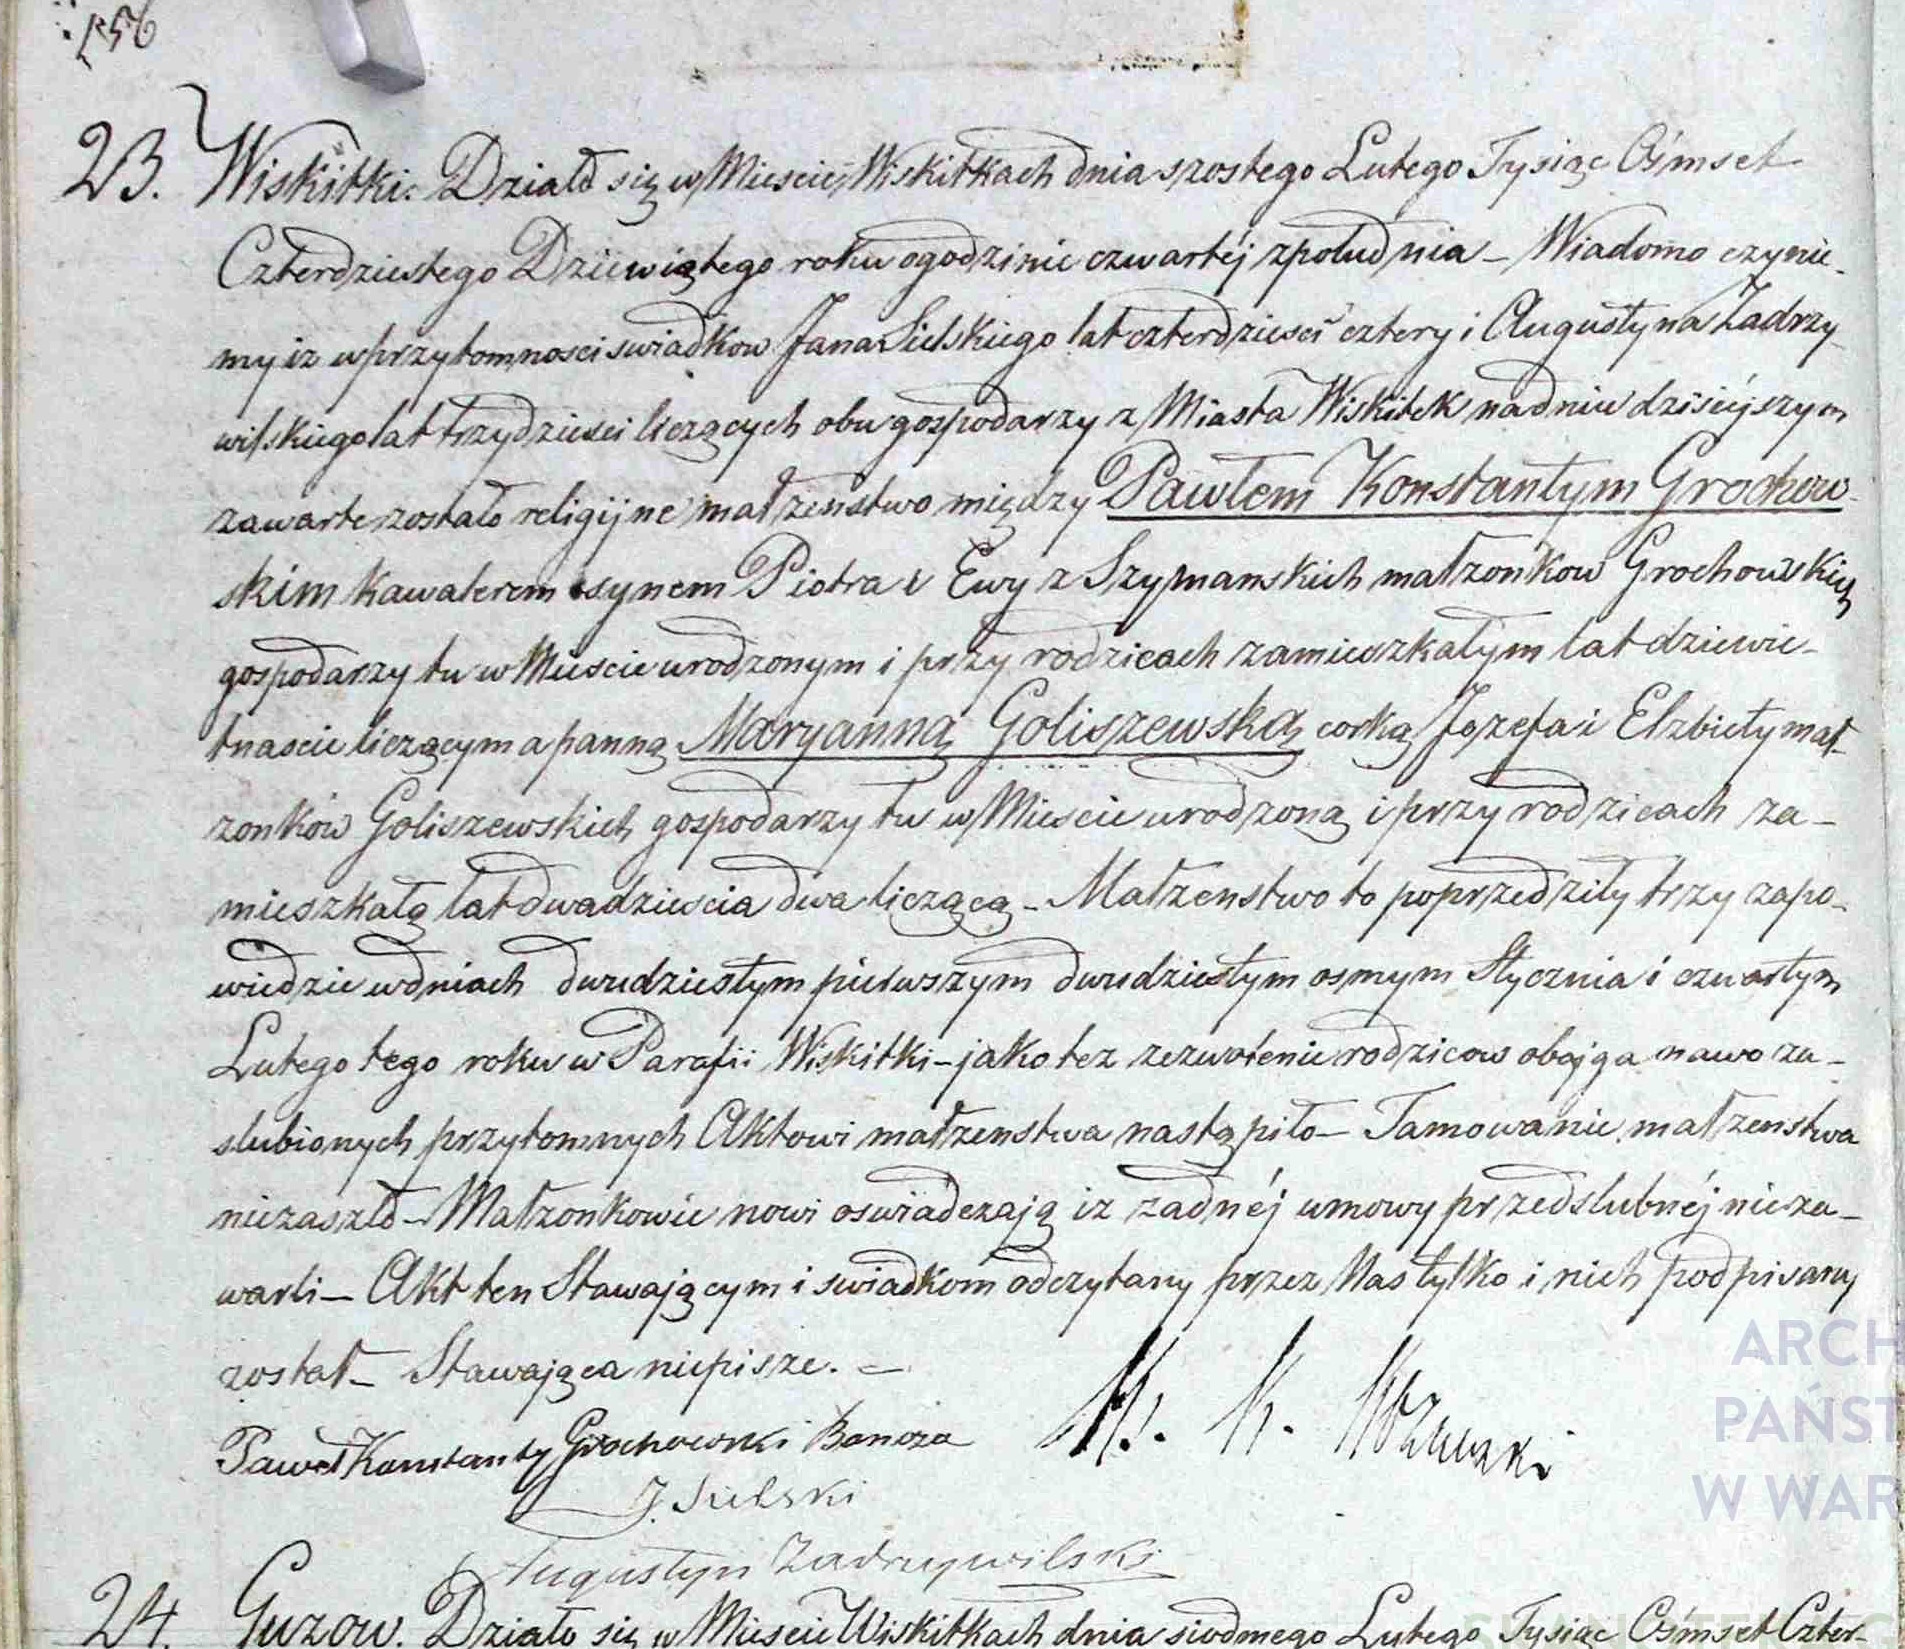 23. Wiskitki. Działo się w Miescie Wiskitkach dnia szostego Lutego Tysiąc Ośmset
Czterdziestego Dziewiątego roku o godzinie czwartéj z południa – Wiadomo czynie-
my iz w przytomnosci swiadkow Jana Sielskiego lat czterdziesci cztery i Augustyna Zadrzy-
wilskiego lat trzydziesci liczących obu gospodarzy z Miasta Wiskitek na dniu dzisiéjszym
zawarte zostało religijne małzenstwo między Pawłem Konstantym Grochow-
skim kawalerem synem Piotra i Ewy z Szymanskich małzonkow Grochowskich
gospodarzy tu w Miescie urodzonym i przy rodzicach zamieszkałym lat dziewie-
tnascie liczącym a panną Maryanną Goliszewską corką Jozefa i Elzbiety mał-
zonków Goliszewskich gospodarzy tu w Miescie urodzoną i przy rodzicach za-
mieszkałą lat dwadziescia dwa liczącą – Małzenstwo to poprzedziły trzy zapo-
wiedzie w dniach dwudziestym pierwszym dwudziestym osmym Stycznia i czwartym
Lutego tego roku w Parafii Wiskitki – jako tez zezwolenie rodzicow obojga nawo za-
slubionych przytomnych Aktowi małzenstwa nastąpiło – Tamowanie małzenstwa
nie zaszło – Małzonkowie nowi oswiadczają iz zadnéj umowy przedslubnéj nie za-
warli – Akt ten Stawającym i swiadkom odczytany przez Nas tylko i nich podpisany
został – Stawająca niepisze. –
Paweł Konstanty Grochowski
J. Sielski
Augustyn Zadrzywilski
24. Guzow. Działo się w Miescie Wiskitkach dnia siodmego Lutego Tysiąc Ośmset Czter-
ARCH
PAŃST
W WAR